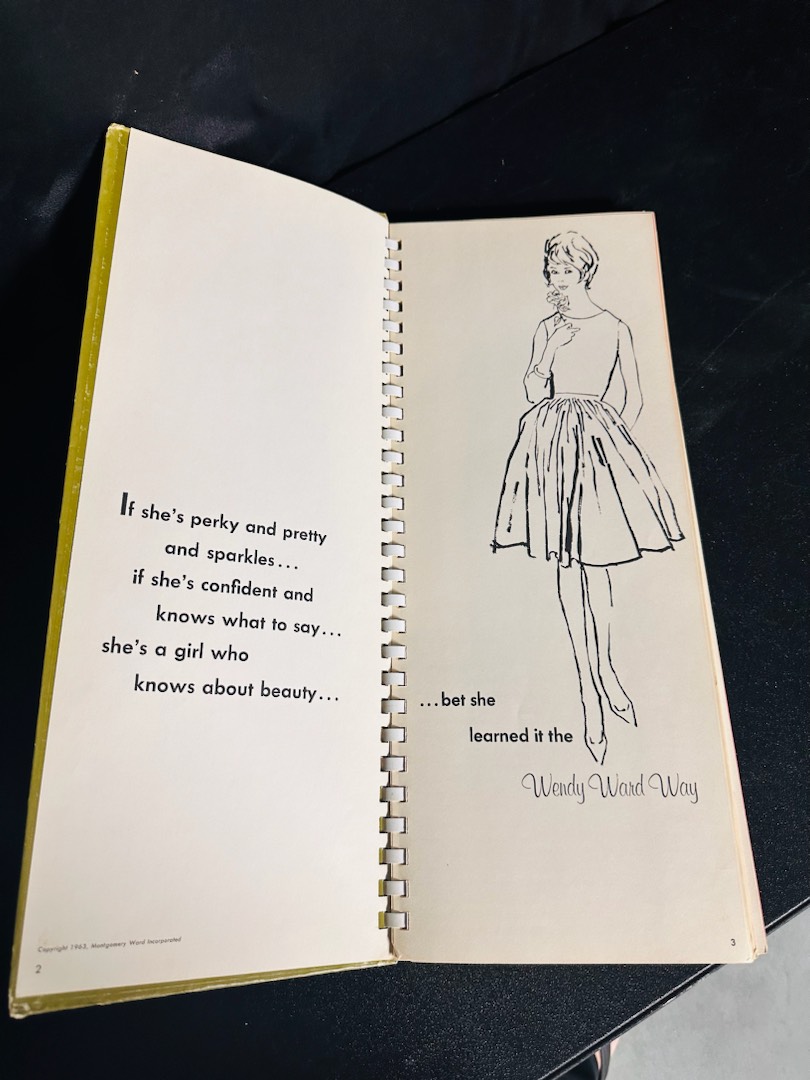 If she's perky and pretty
and sparkles...
if she's confident and
knows what to say...
she's a girl who
knows about beauty...
Copyright 1963, Montgomery Ward Incorporated
2
...bet she
learned it the
Wendy Ward Way
3